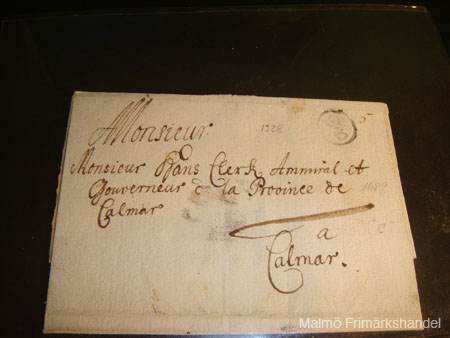 Monsieur
1528
Monsieur Hans Clerk Ammiral et
Gouverneur à la Province de
Calmar
a
Calmar.
Malmö Frimärkshandel